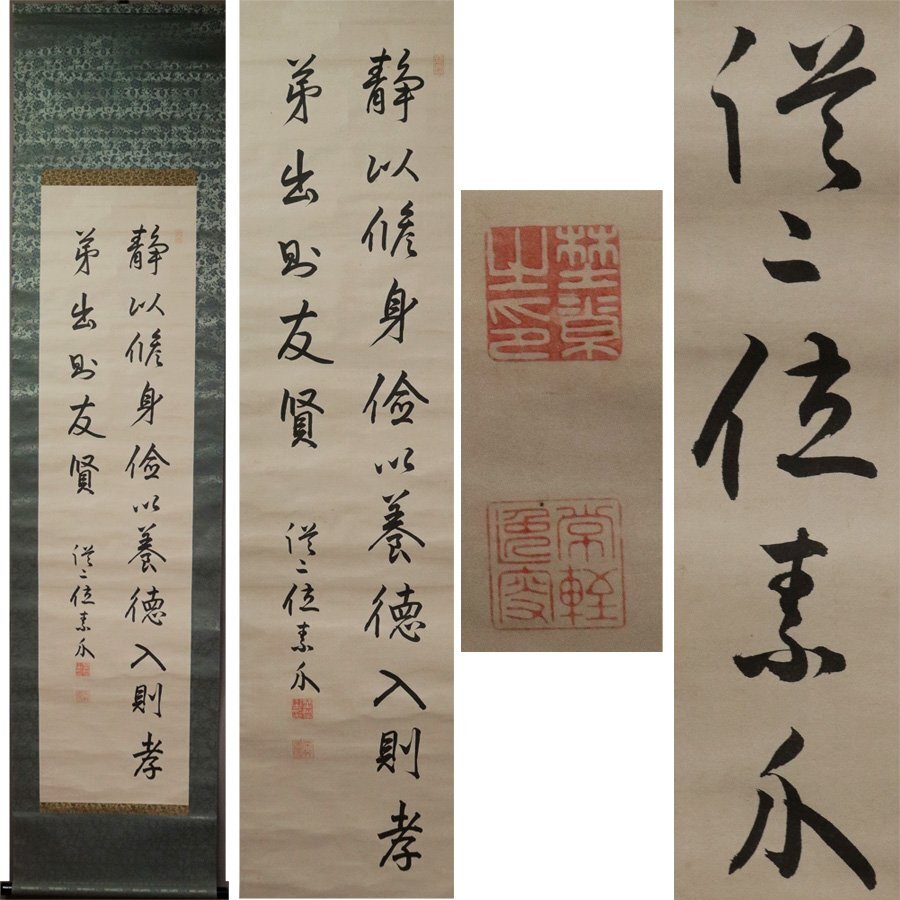 静以脩身倹以養徳入則孝
弟出則友賢
従二位素介
静以脩身倹以養徳入則孝
弟出則友賢
従二位素介
従二位素介